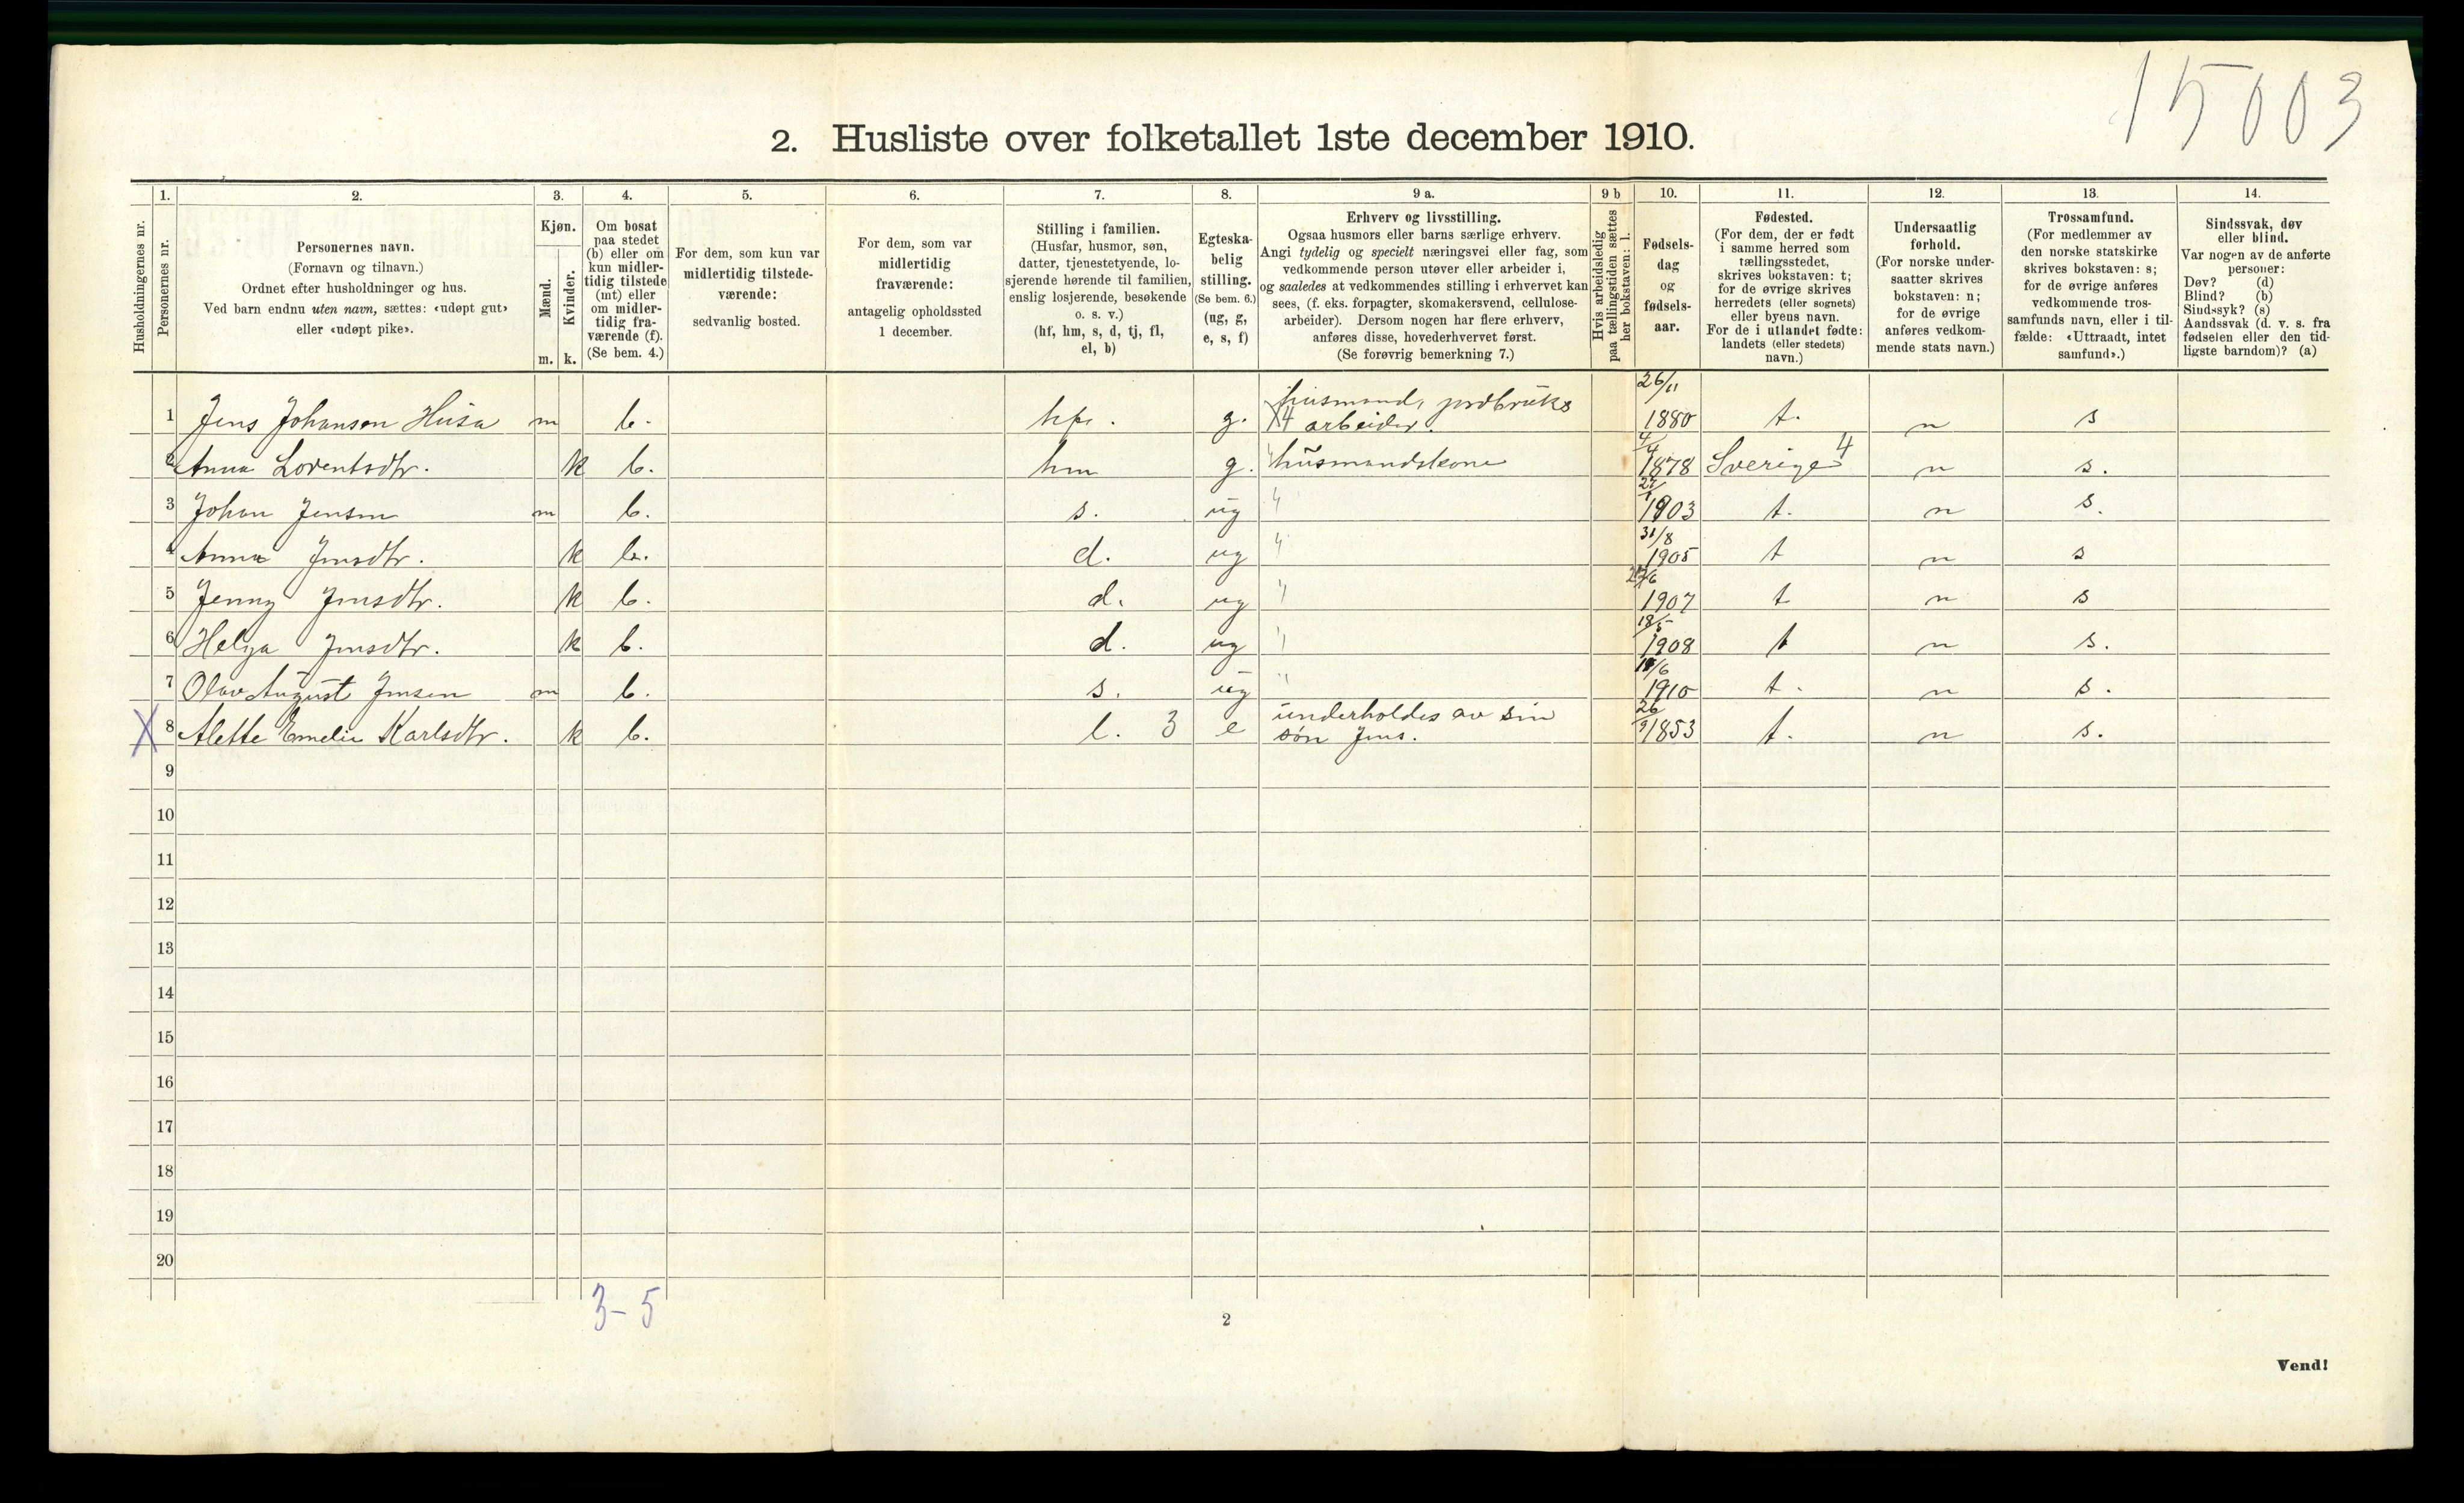 15003
2. Husliste over folketallet 1ste december 1910.
Husholdningernes nr.
1.
Personernes nr.
2.
Personernes navn.
(Fornavn og tilnavn.)
Ordnet efter husholdninger og hus.
Ved barn endnu uten navn, sættes: «udøpt gut»
eller «udøpt pike».
3.
Kjøn.
Mænd.
Kvinder.
m. k.
4.
Om bosat
paa stedet
(b) eller om
kun midler-
tidig tilstede
(mt) eller
om midler-
tidig fra-
værende (f).
(Se bem. 4.)
5.
For dem, som kun var
midlertidig tilstede-
værende:
sedvanlig bosted.
6.
For dem, som var
midlertidig
fraværende:
antagelig opholdssted
1 december.
7.
Stilling i familien.
(Husfar, husmor, søn,
datter, tjenestetyende, lo-
sjerende hørende til familien,
enslig losjerende, besøkende
o. s. v.)
(hf, hm, s, d, tj, fl,
el, b)
8.
Egteska-
belig
stilling.
(Se bem. 6.)
(ug, g,
e, s, f)
9 a.
Erhverv og livsstilling.
Ogsaa husmors eller barns særlige erhverv.
Angi tydelig og specielt næringsvei eller fag, som
vedkommende person utøver eller arbeider i,
og saaledes at vedkommendes stilling i erhvervet kan
sees, (f. eks. forpagter, skomakersvend, cellulose-
arbeider). Dersom nogen har flere erhverv,
anføres disse, hovederhvervet først.
(Se forøvrig bemerkning 7.)
9 b
Hvis arbeidsledig
paa tællingstiden sættes
her bokstaven: l.
10.
Fødsels-
dag
og
fødsels-
aar.
11.
Fødested.
(For dem, der er født
i samme herred som
tællingsstedet,
skrives bokstaven: t;
for de øvrige skrives
herredets (eller sognets)
eller byens navn.
For de i utlandet fødte:
landets (eller stedets)
navn.)
12.
Undersaatlig
forhold.
(For norske under-
saatter skrives
bokstaven: n;
for de øvrige
anføres vedkom-
mende stats navn.)
13.
Trossamfund.
(For medlemmer av
den norske statskirke
skrives bokstaven: s;
for de øvrige anføres
vedkommende tros-
samfunds navn, eller i til-
fælde: «Uttraadt, intet
samfund».)
14.
Sindssvak, døv
eller blind.
Var nogen av de anførte
personer:
Døv? (d)
Blind? (b)
Sindssyk? (s)
Aandssvak (d. v. s. fra
fødselen eller den tid-
ligste barndom)? (a)
1 Jens Johansen Husa m b. hf. g. husmand, jordbruks X4 arbeider. 26/11 1880 t. n s
2 Anna Lorentsdtr. k b. hm g. husmandskone 4/4 1878 Sverige 4 n s.
3 Johan Jensen m b. s. ug " 1903 t. n s.
4 Anna Jensdtr. k b. d. ug " 31/8 1905 t n s
5 Jenny Jensdtr. k b. d. ug " 1907 t n s
6 Helga Jensdtr. k b. d. ug " 18/5 1908 t n s.
7 Olav August Jensen m b. s. ug " 1910 t. n s.
X 8 Alette Emelie Karlsdtr. k b. l. 3 e underholdes av sin søn Jens. 26/9 1853 t. n s.
9
10
11
12
13
14
15
16
17
18
19
20
3-5
2
Vend!